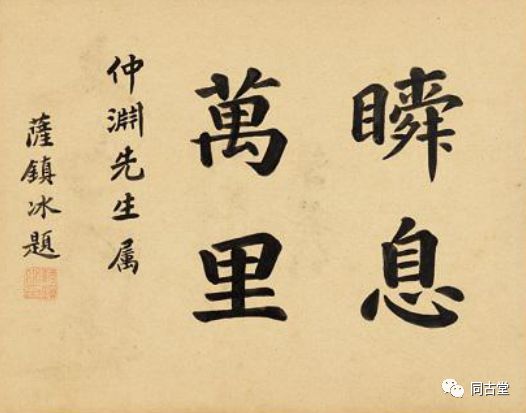 瞬息
萬里
仲淵先生属
薩鎮冰題
同古堂